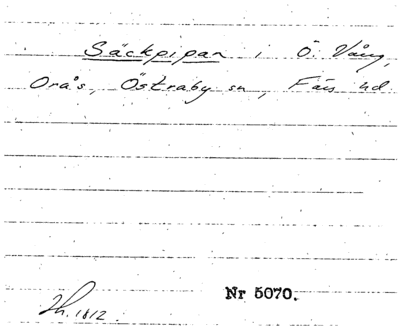 Säckpipan i Ö. Vång,
Orås, Östraby sn, Färs hd
Nr 5070.
1812.